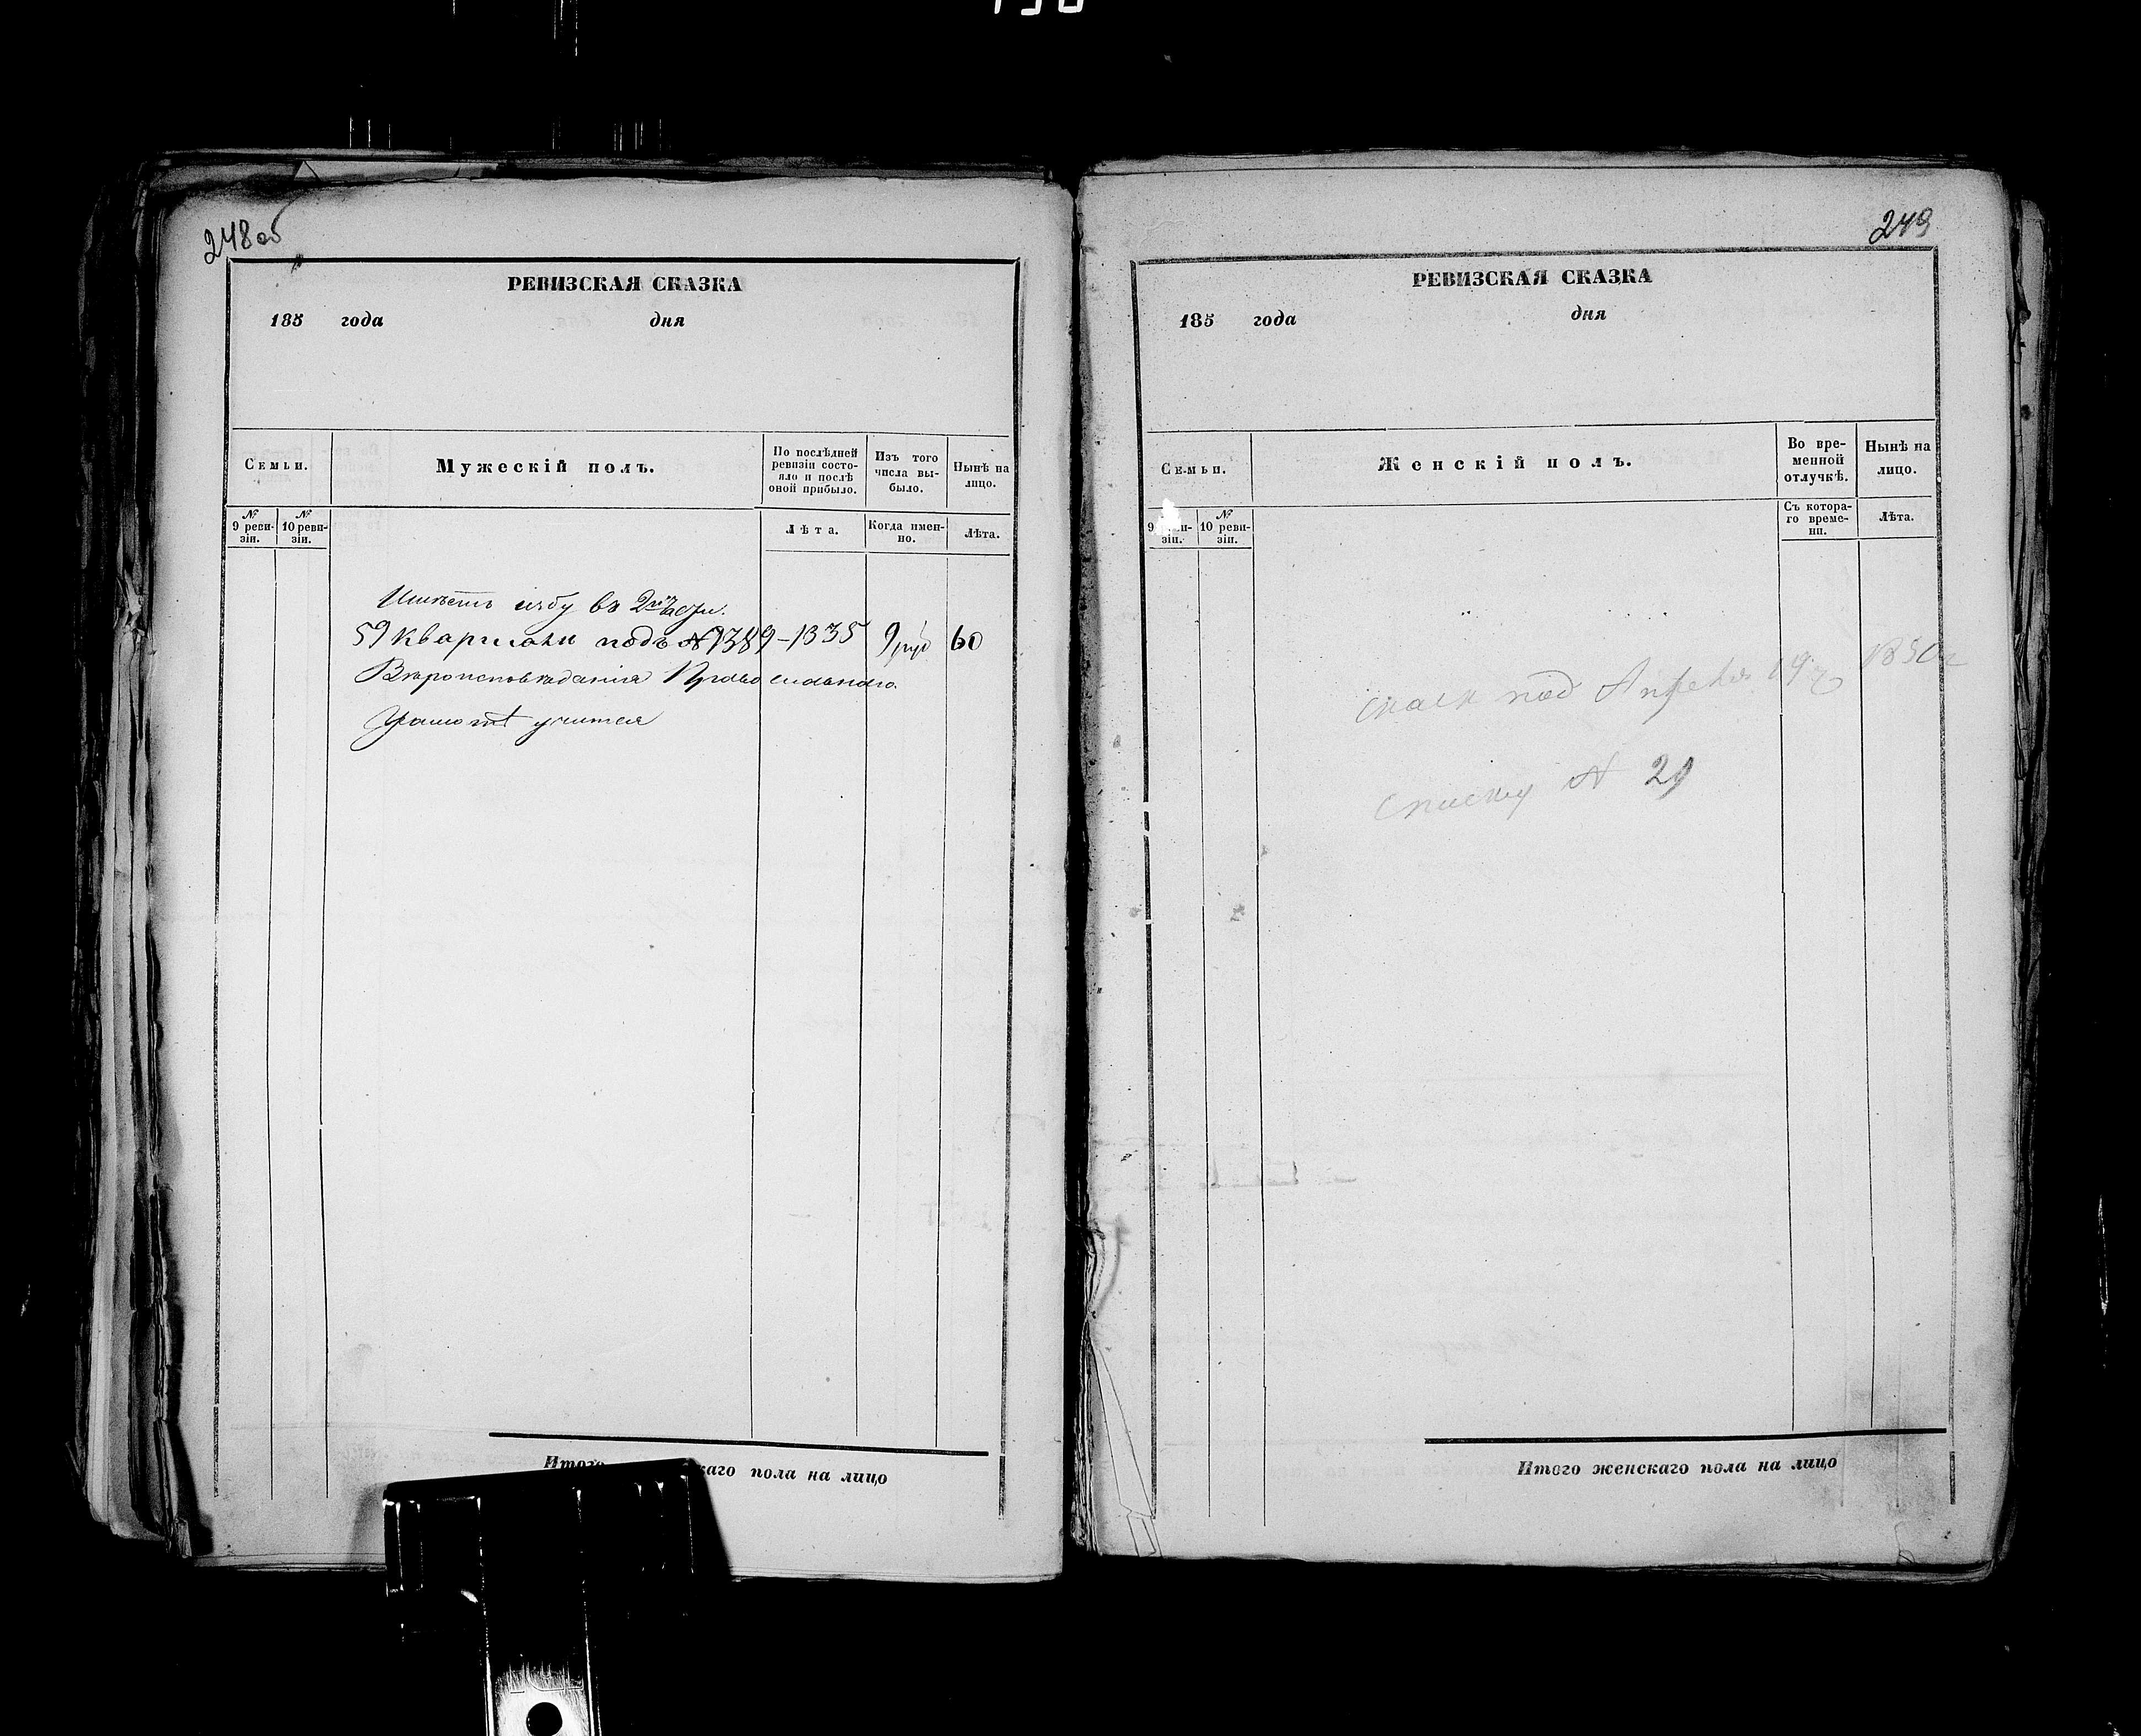 248 об
РЕВИЗСКАЯ СКАЗКА
185 года дня
Семьи.
Мужескій полъ.
По послѣдней ревизіи состо-
яло и послѣ оной прибыло.
Изъ того числа вы-
было.
Нынѣ на лицо.
№ 9 реви-
зіи.
№ 10 реви-
зіи.
Лѣта.
Когда имен-
но.
Лѣта.
Имѣетъ избу въ 2й части.
59 квартала подъ № 1389-1335 9 руб 60
Вѣроисповѣданія Православнаго.
Грамотѣ учится
Итого каго пола на лицо
249
РЕВИЗСКАЯ СКАЗКА
185 года дня
Семьи.
Женскій полъ.
Во вре-
менной
отлучкѣ.
Нынѣ на
лицо.
9 зіи.
№ 10 реви-
зіи.
Съ котора-
го време-
ни.
Лѣта.
под Апреля 19 1850г
списку № 29
Итого женскаго пола на лицо